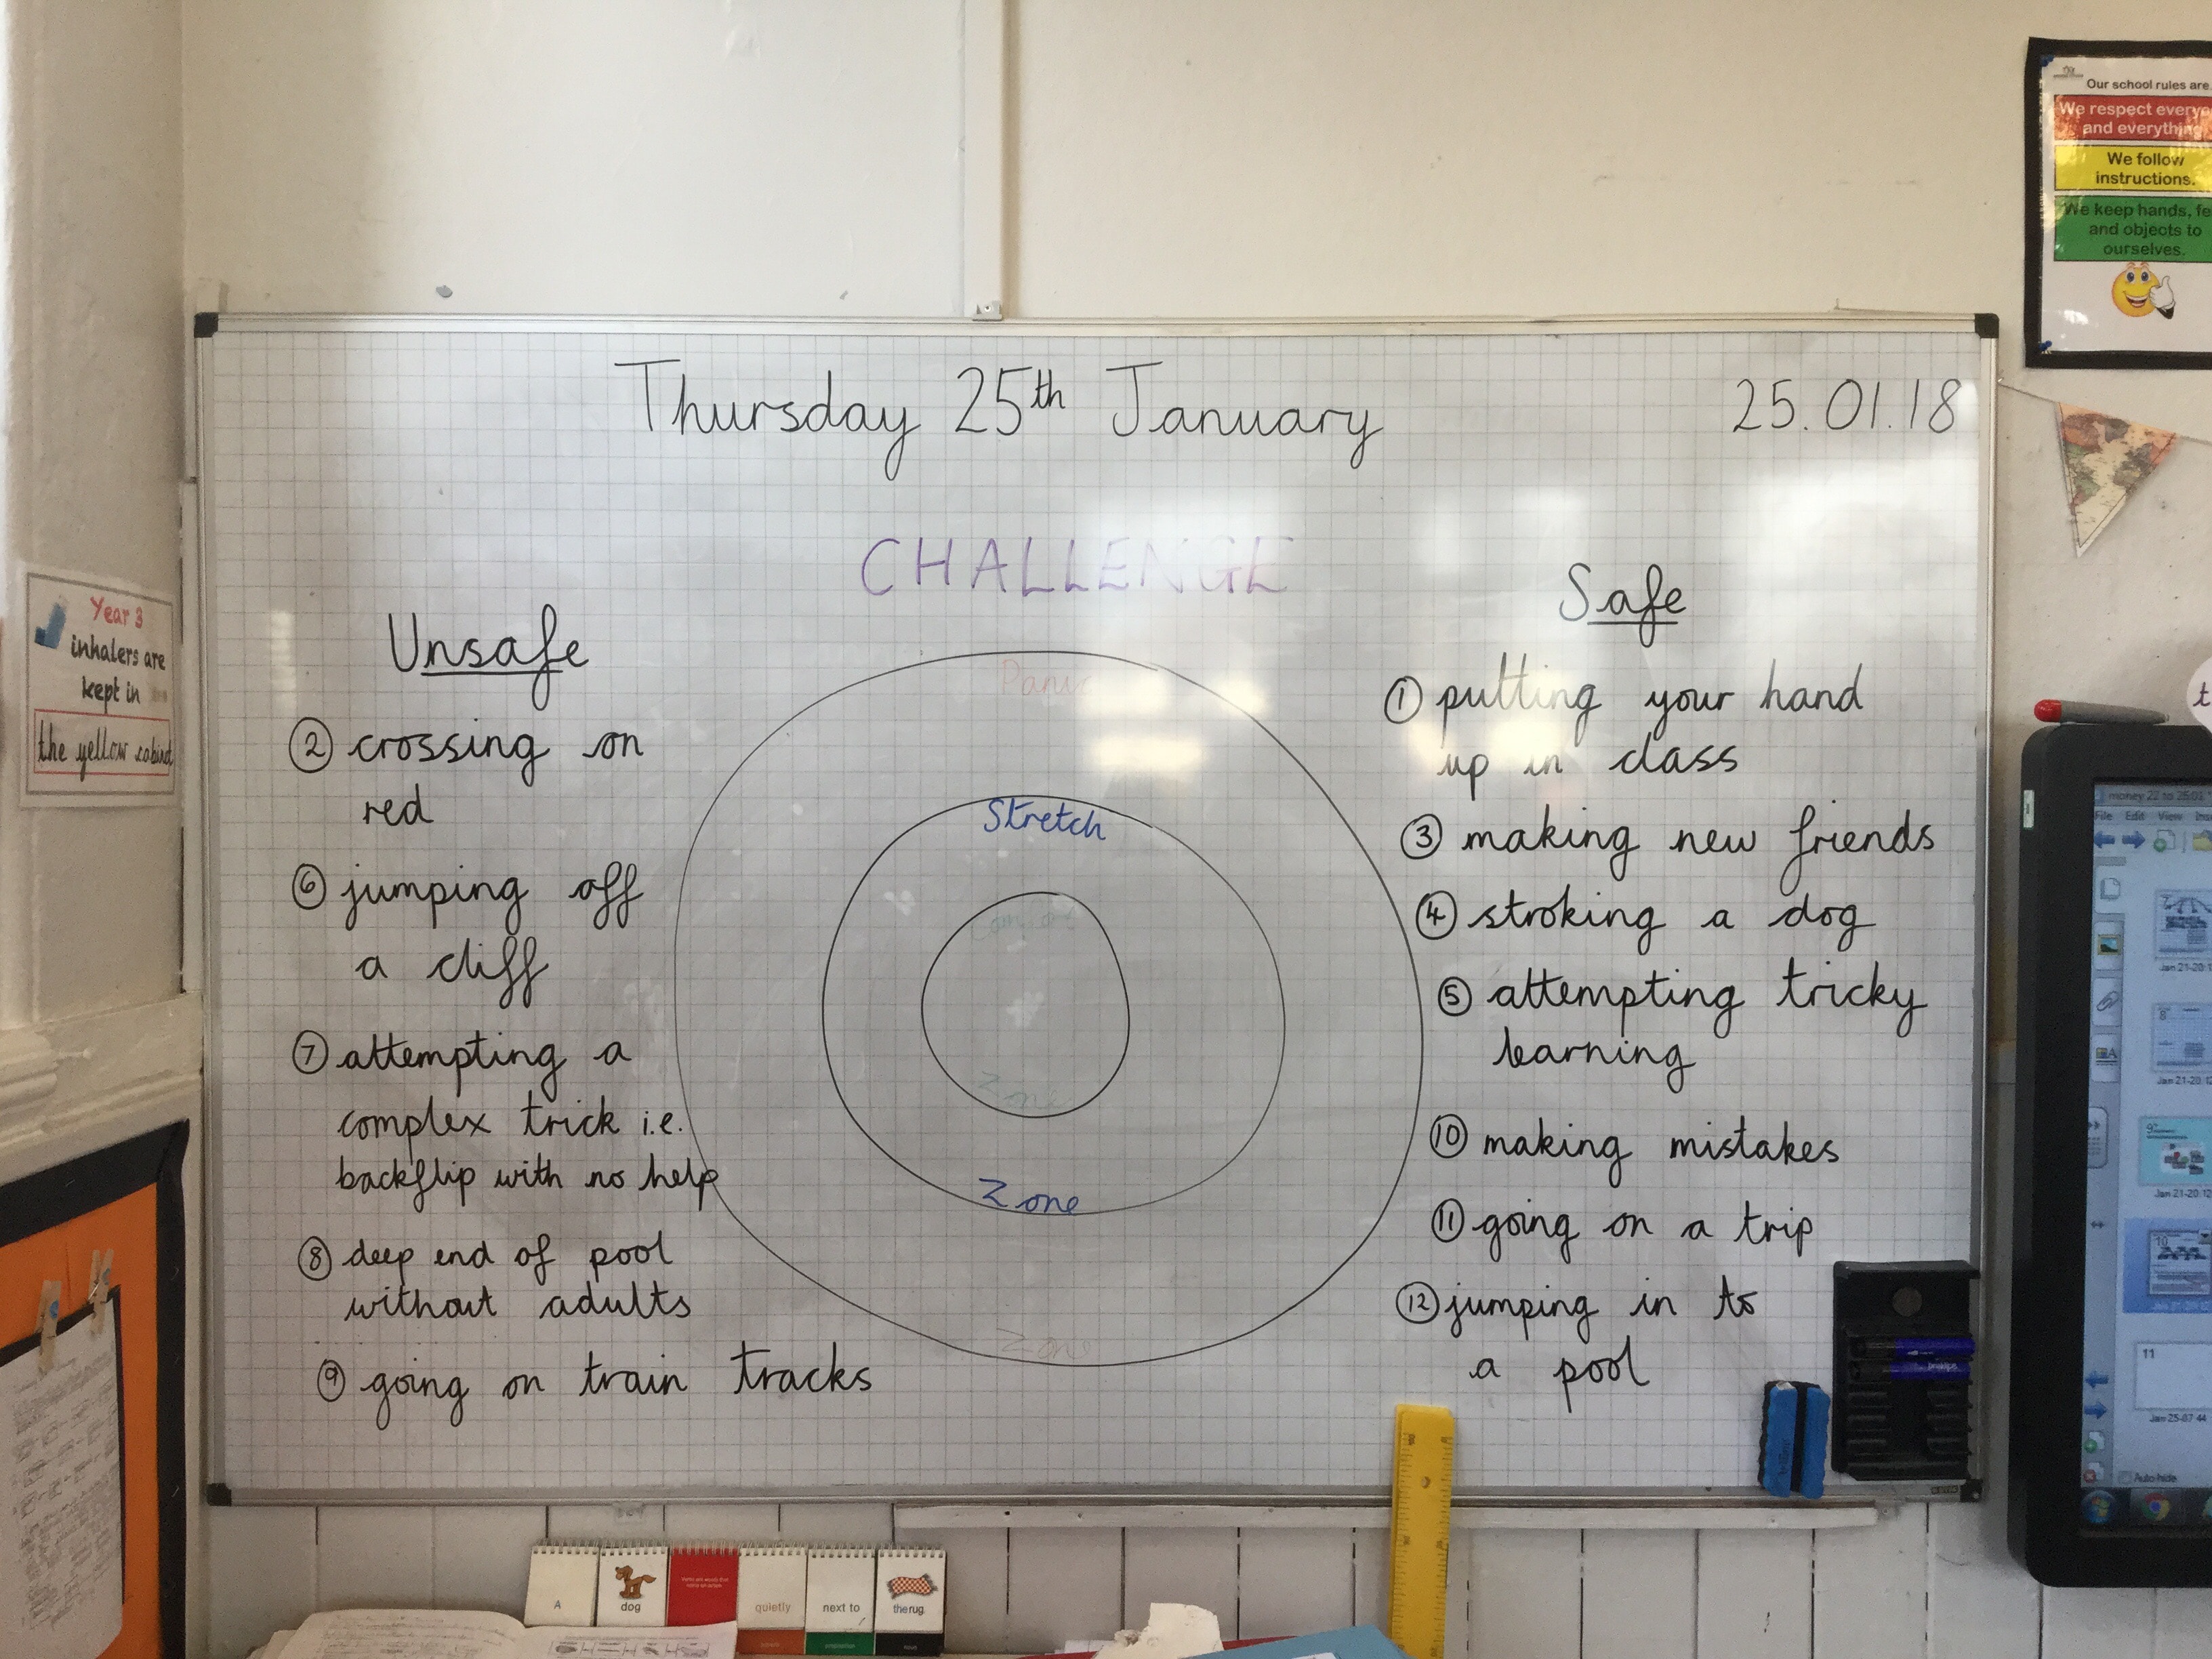 Thursday 25th January
25.01.18
CHALLENGE
Unsafe
② crossing on
red
⑥ jumping off
a cliff
⑦ attempting a
complex trick i.e.
backflip with no help
⑧ deep end of pool
without adults
⑨ going on train tracks
Panic
Stretch
Comfort
Zone
Zone
Zone
Safe
① putting your hand
up in class
③ making new friends
④ stroking a dog
⑤ attempting tricky
learning
⑩ making mistakes
⑪ going on a trip
⑫ jumping in to
a pool
Year 3
inhalers are
kept in
the yellow
Our school rules are
We respect
and everything
We follow
instructions.
We keep hands,
and objects to
ourselves.
money 22 to 26.01
File Edit View
Jan 21-20:12
Jan 21-20:12
11
Jan 25-07:44
Auto-hide
A
dog
quietly
next to
the rug.